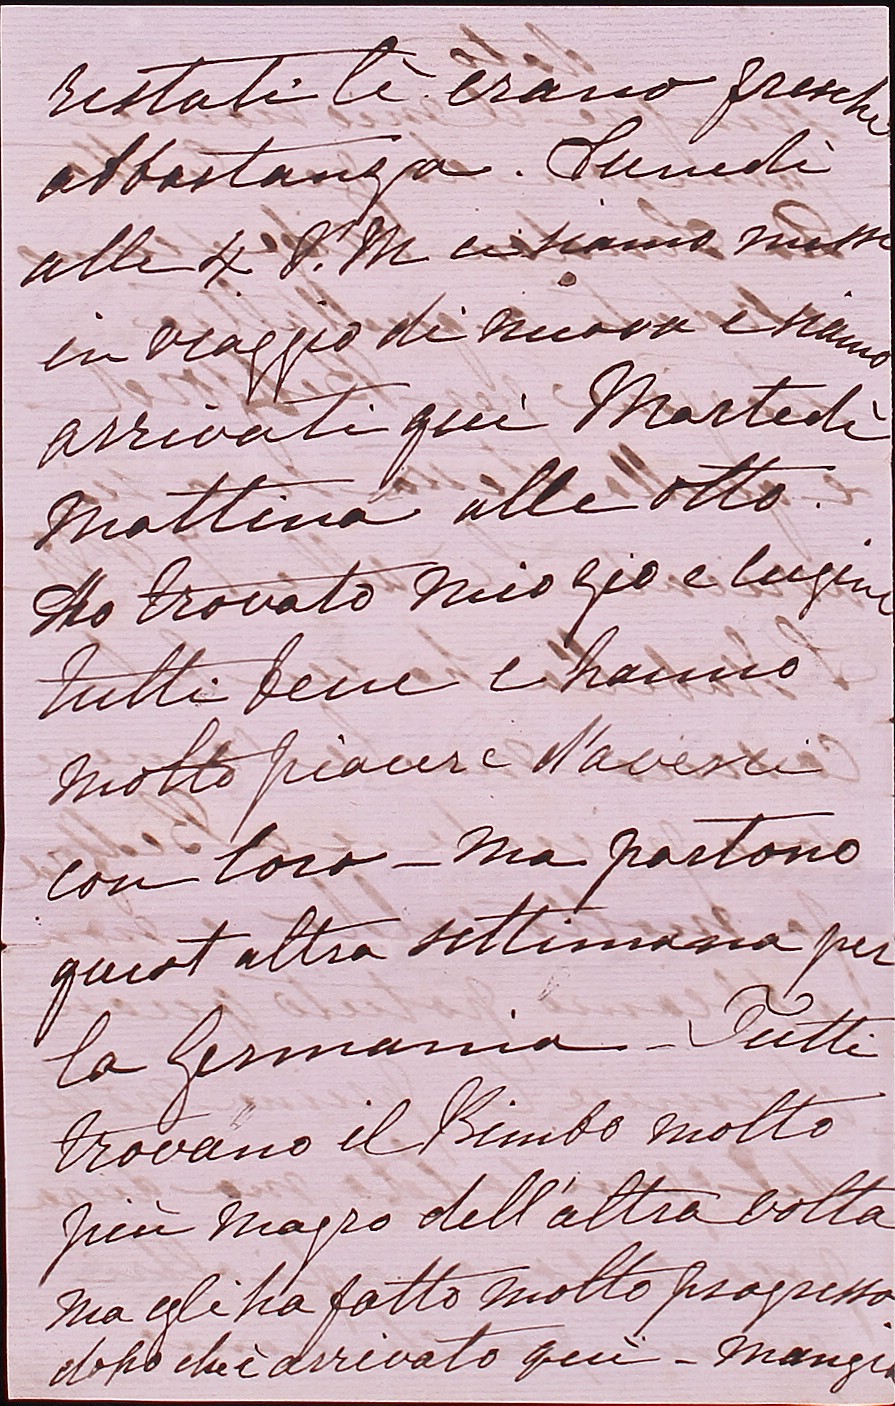 restati lì erano freschi
abbastanza. Lunedì
alle 4 P.M ci siamo messi
in viaggio di nuovo e siamo
arrivati quì Martedì
Mattina alle otto.
Ho trovato mio zio e cugine
tutti bene e hanno
molto piacere d'averci
con loro – ma partono
quest altra settimana per
la Germania – Tutti
trovano il Bimbo molto
più magro dell'altra volta
ma egli ha fatto molto progresso
dopo che è arrivato quì – mangia